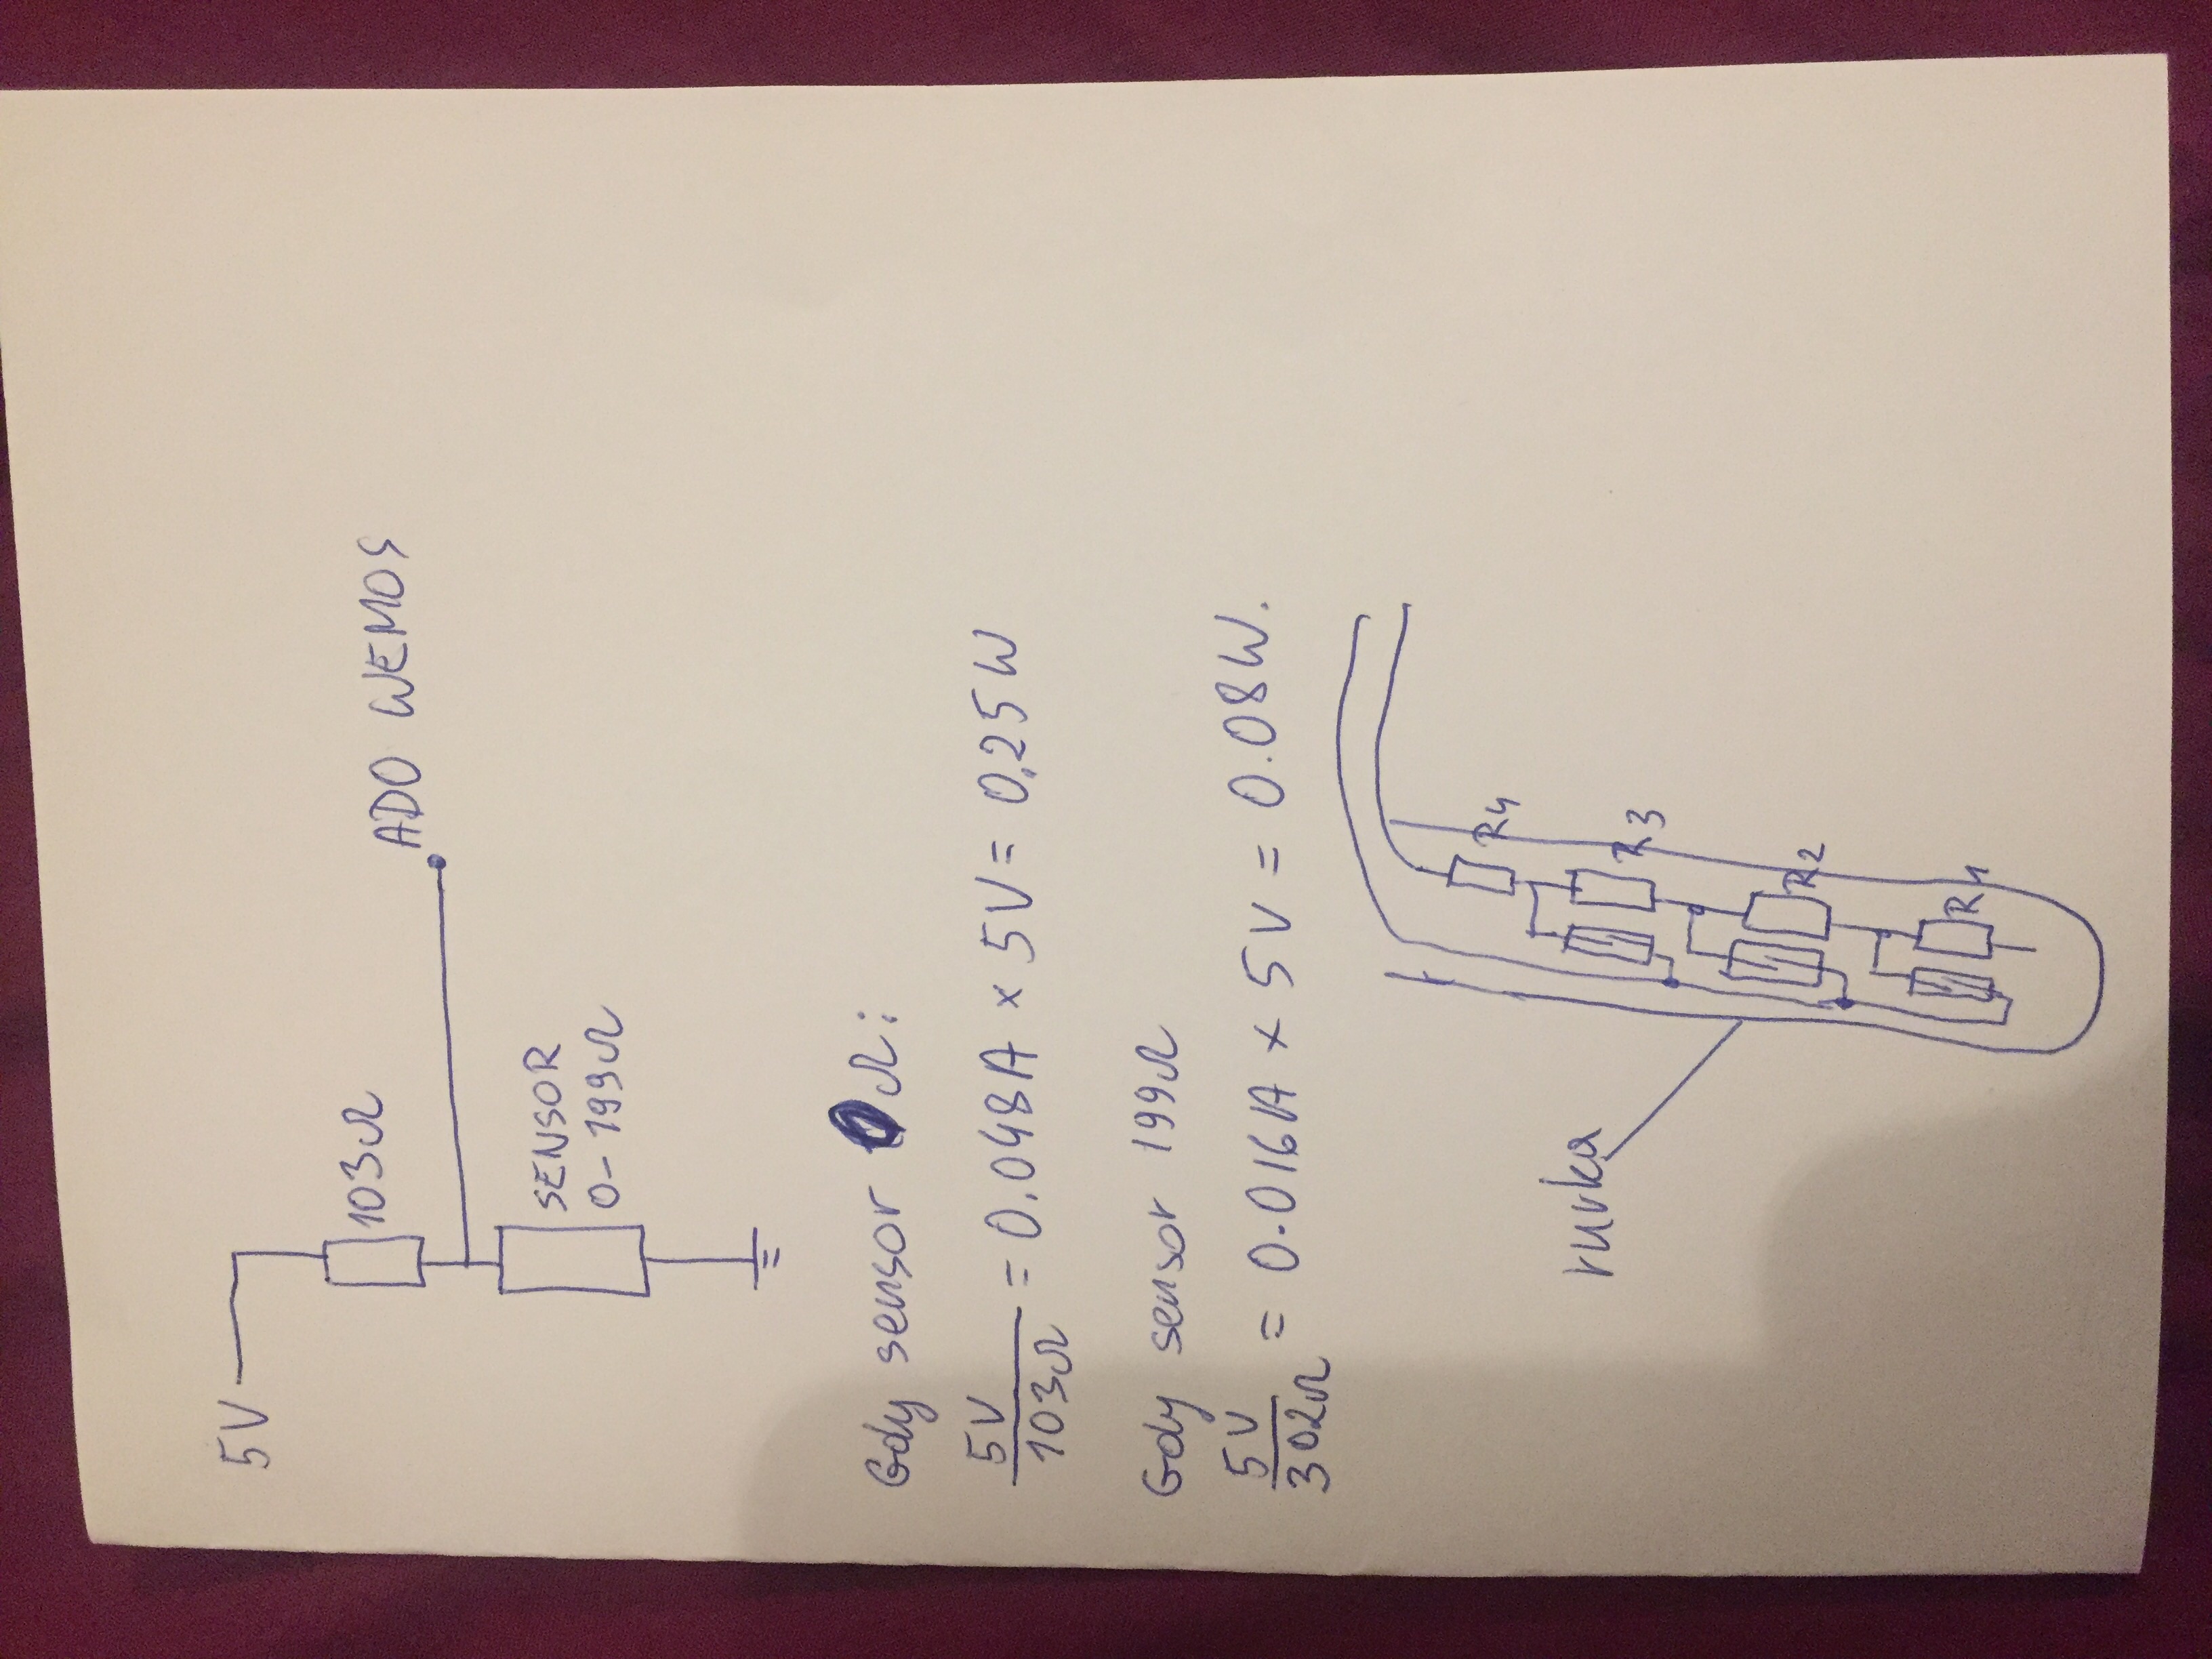 5V
103Ω
AD0 WEMOS
SENSOR
0-199Ω
Gdy sensor 0Ω:
5V
103Ω
= 0.048A × 5V = 0,25W
Gdy sensor 199Ω
5V
302Ω
= 0.016A × 5V = 0.08W.
rurka
R4
R3
R2
R1